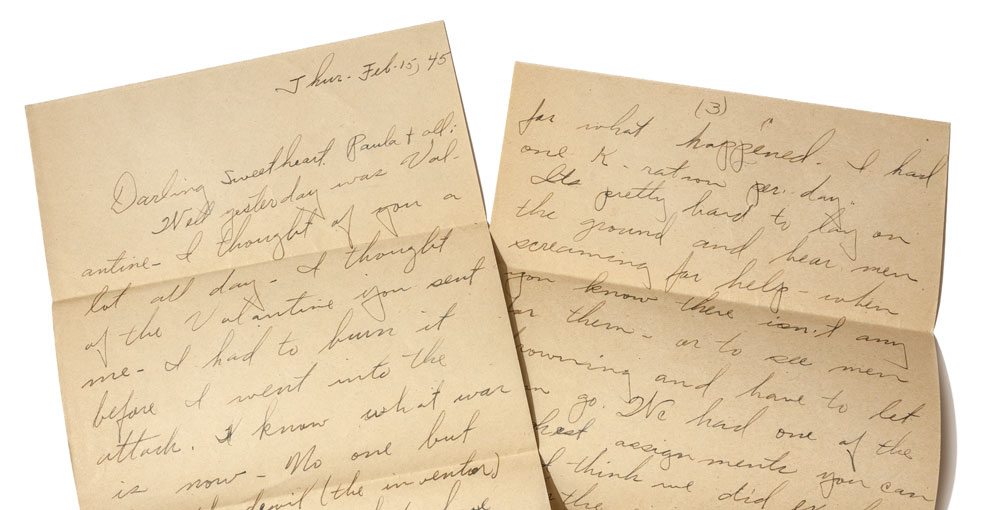 Thur. Feb. 15, 45
Darling Sweetheart, Paula + all:
Well yesterday was Val-
antine - I thought of you a
lot all day. I thought
of the Valantine you sent
me - I had to burn it
before I went into the
attack. I know what war
is now - No one but
devil (the inventor)
(3)
for what happened. I had
one K-ration per. day.
Its pretty hard to lay on
the ground and hear men
screaming for help - when
you know there isn't any
for them - or to see men
and have to let
go. We had one of the
assignments you can
I think we did